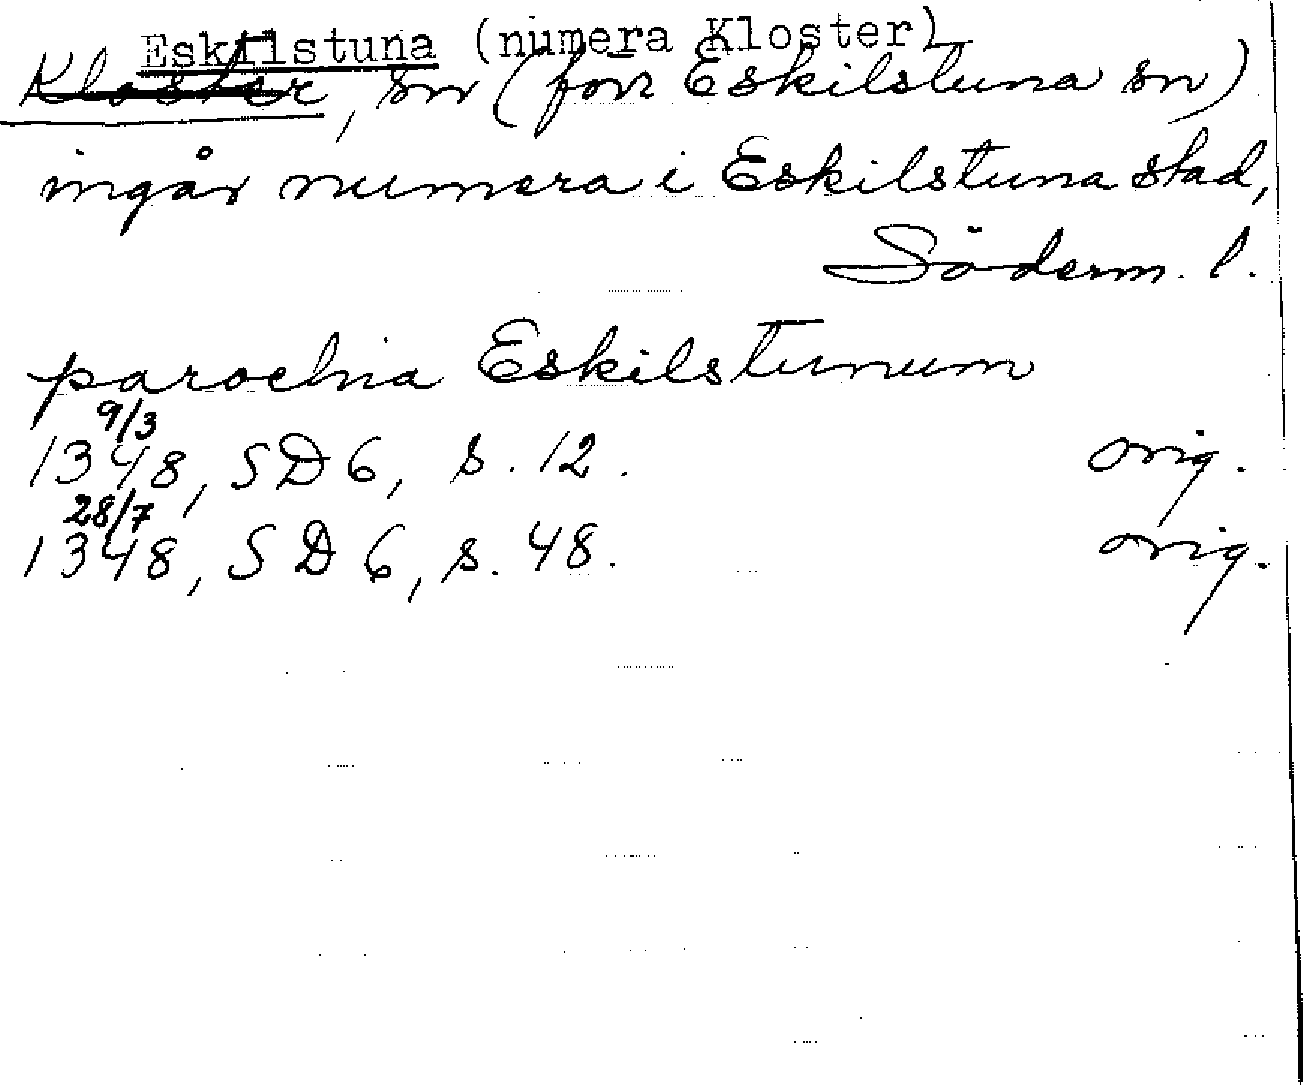 Eskilstuna (numera Kloster)
Kloster, sn (förr Eskilstuna sn)
ingår numera i Eskilstuna stad,
Söderm. l.
parochia Eskilstunum
9/3
1348, SD 6, s. 12. orig.
28/7
1348, SD 6, s. 48. orig.